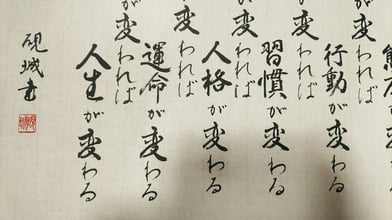 われば
行動が変わる
変われば
習慣が変わる
変われば
人格が変わる
が変われば
運命が変わる
が変われば
人生が変わる
硯城書